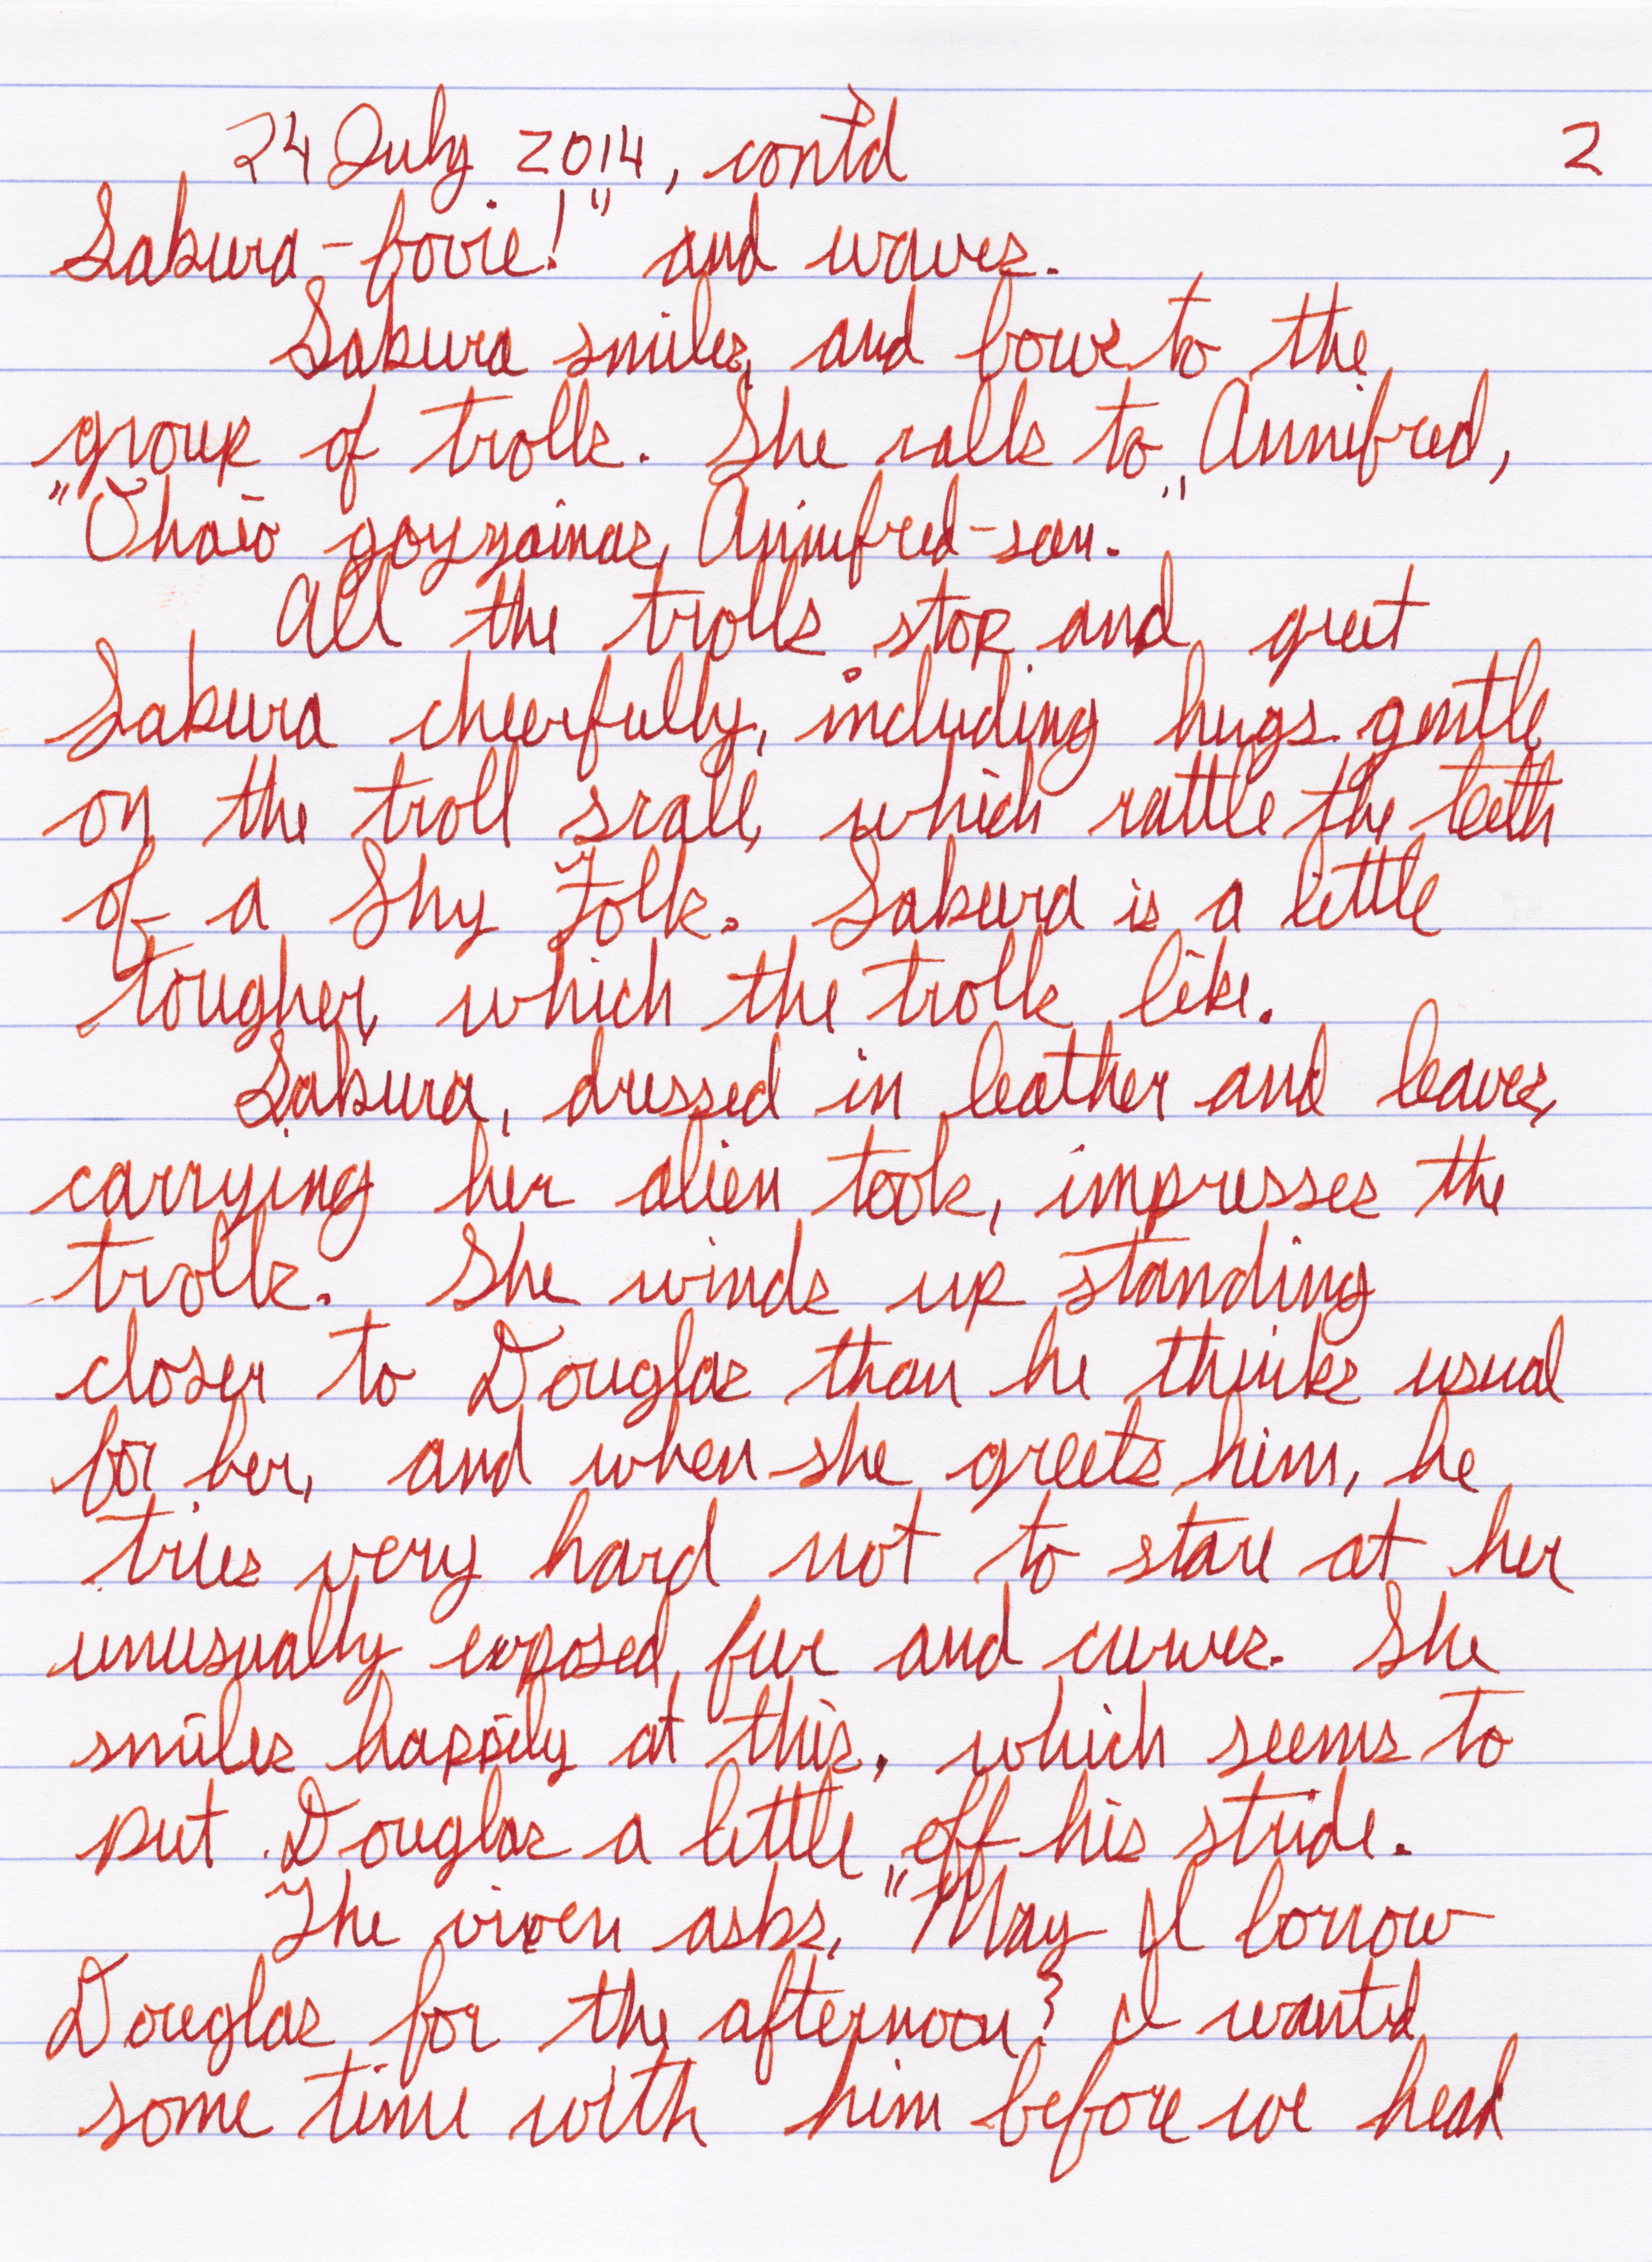 24 July 2014, cont'd 2
Sakura-fovie!" and waves.
Sakura smiles, and bows to the
group of trolls. She calls to Annifred,
"Ohaio goyzaimas, Annifred-san."
All the trolls stop and greet
Sakura cheerfully, including hugs gentle
on the troll scale, which rattle the teeth
of a Shy Folk. Sakura is a little
tougher, which the trolls like.
Sakura, dressed in leather and leaves,
carrying her alien tools, impresses the
trolls. She winds up standing
closer to Douglas than he thinks usual
for her, and when she greets him, he
tries very hard not to stare at her
unusually exposed fur and curves. She
smiles happily at this, which seems to
put Douglas a little off his stride.
The vixen asks, "May I borrow
Douglas for the afternoon? I wanted
some time with him before we head